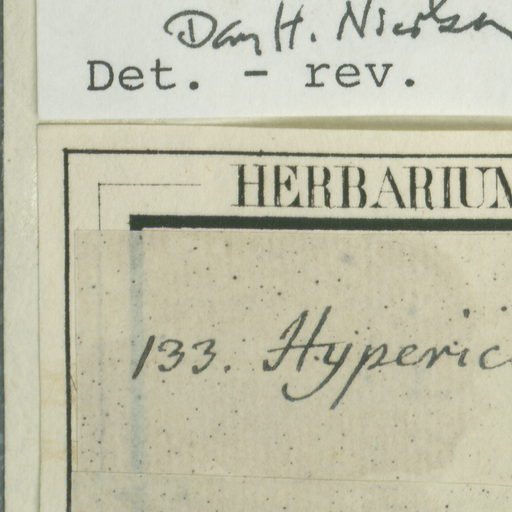 Dan H. Nicolson
Det. - rev.
HERBARIUM
133. Hyperic